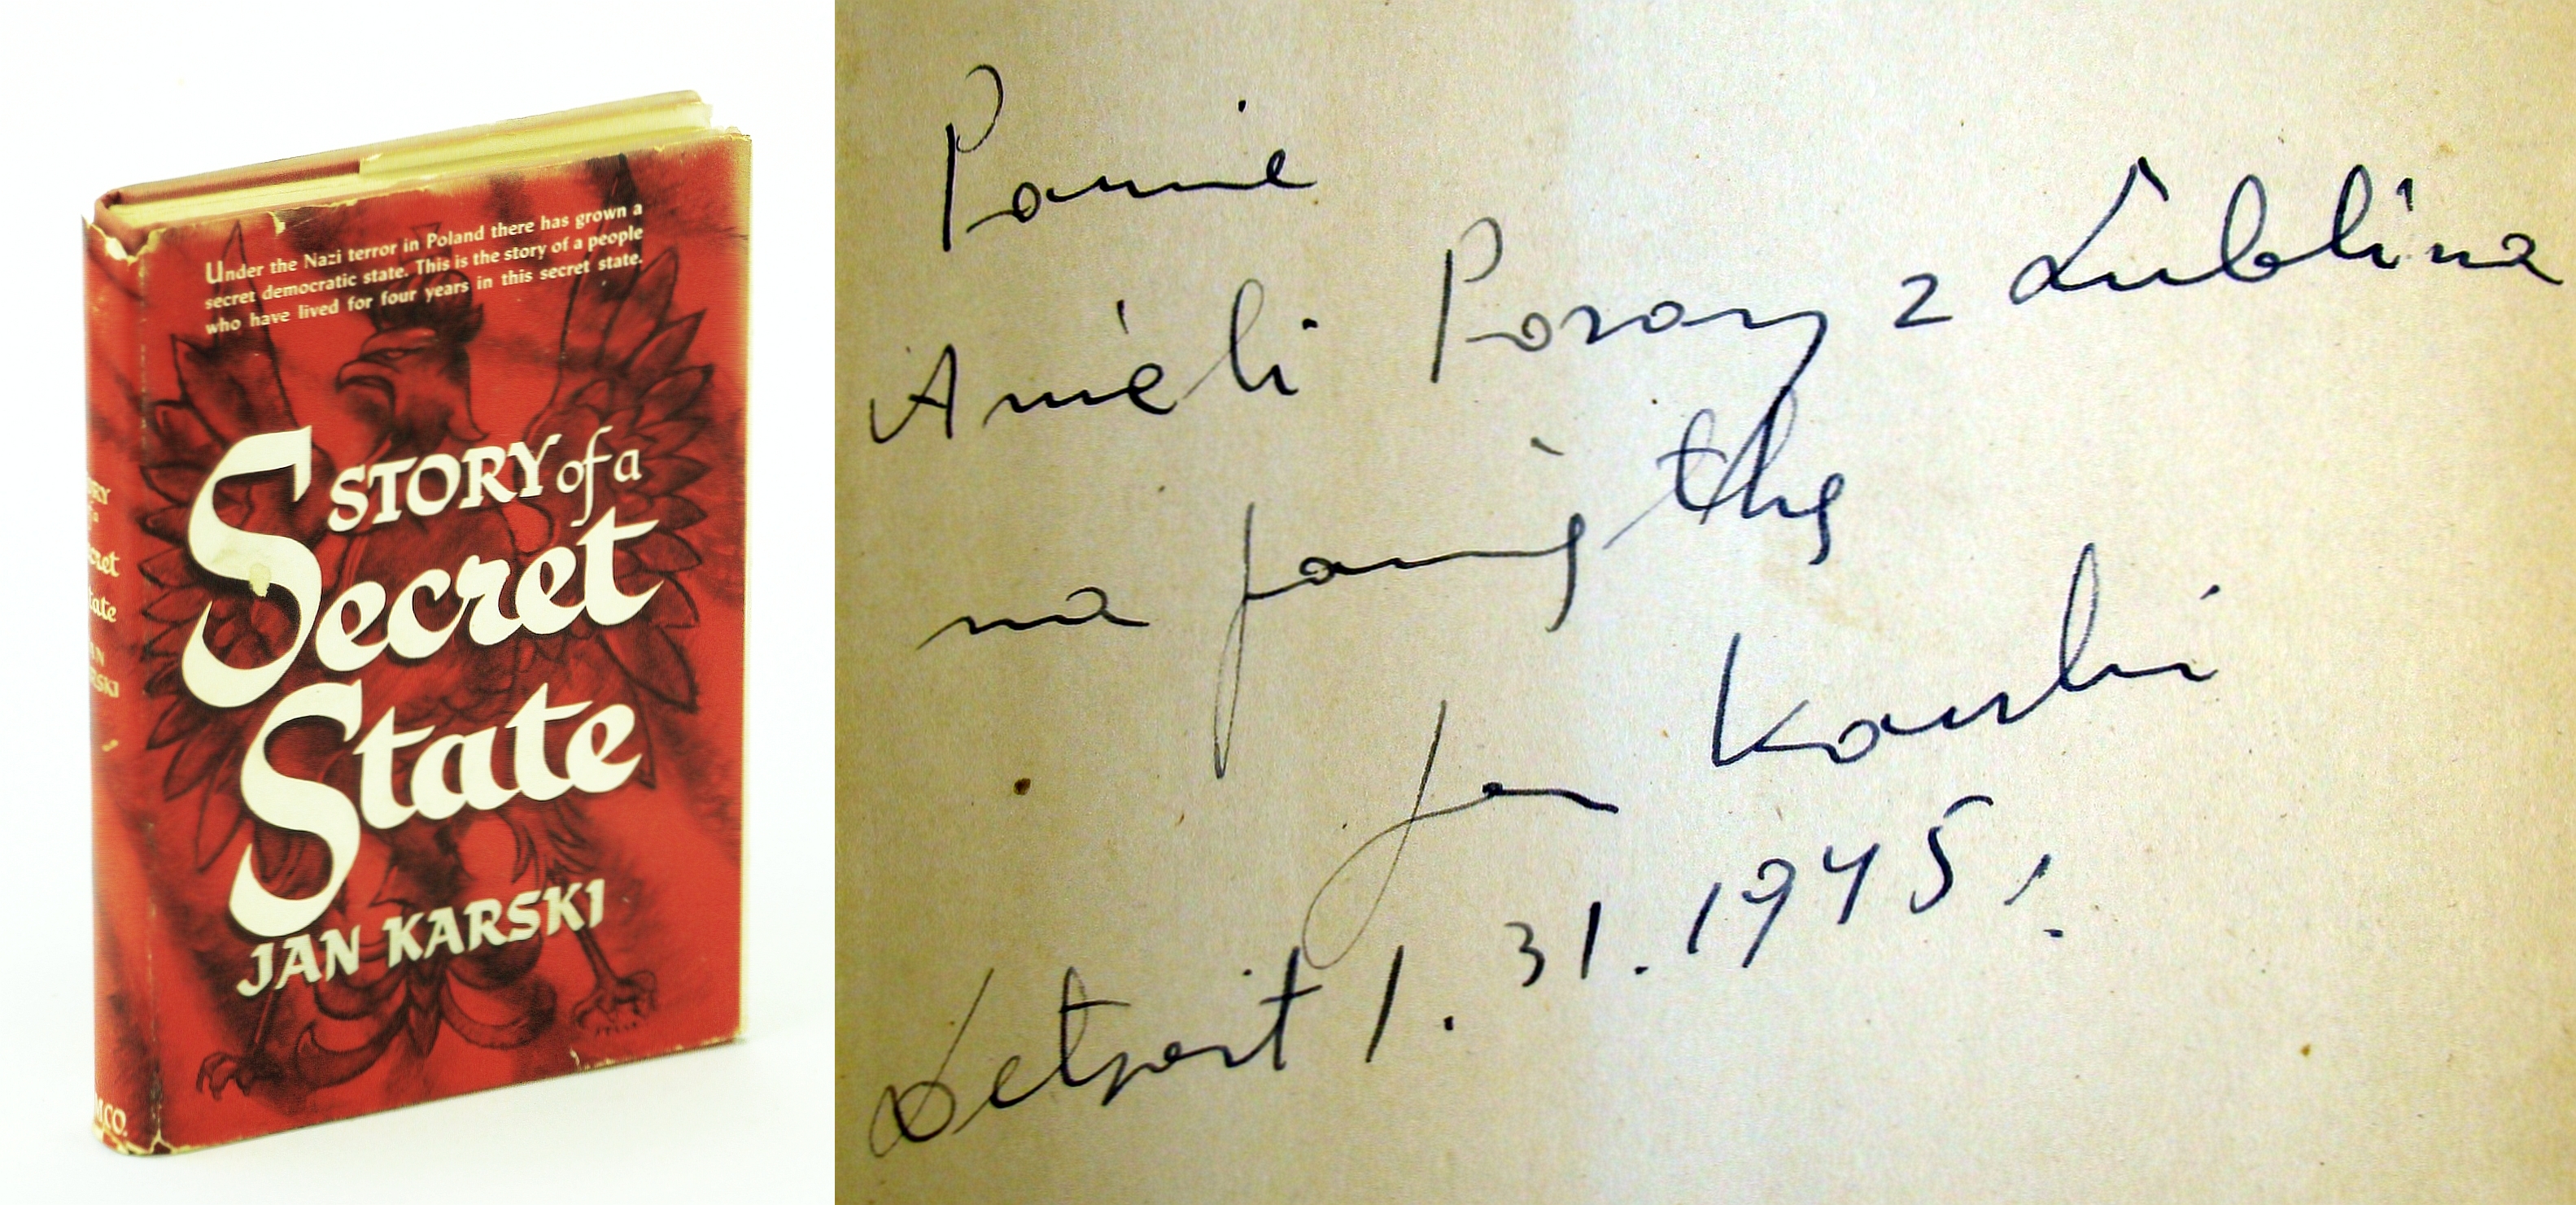 Under the Nazi terror in Poland there has grown a
secret democratic state. This is the story of a people
who have lived for four years in this secret state.
STORY of a
Secret
State
JAN KARSKI
MCO.
Panie
Anieli Poray z Lublina
na pamiątkę
Jan Karski
Detroit 1. 31. 1945 r.